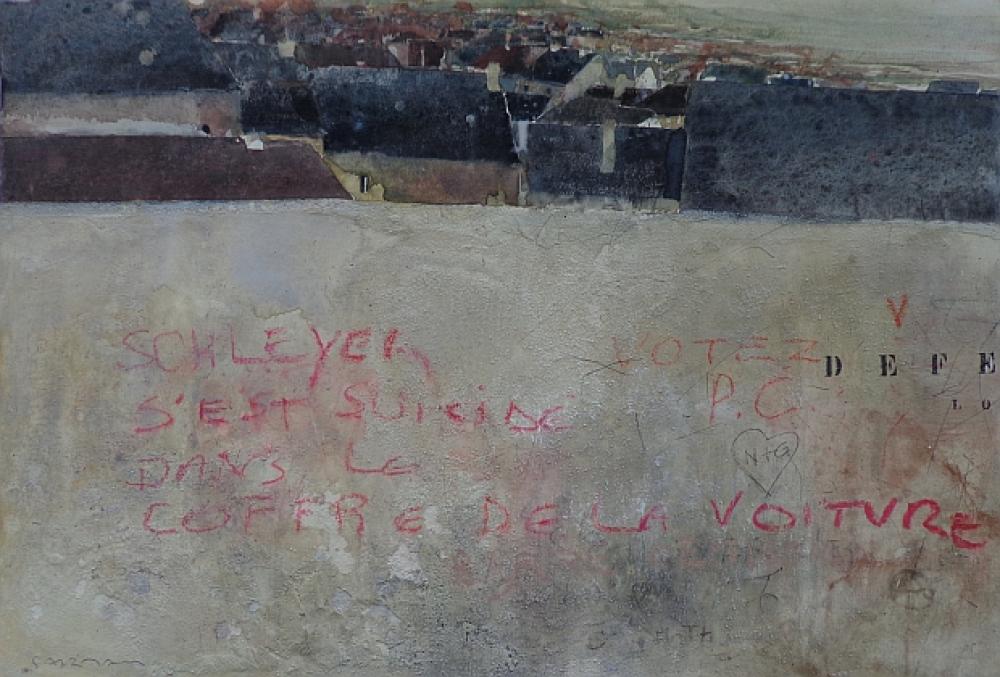 SCHLEYER
S'EST SUICIDÉ
DANS LE
COFFRE DE LA VOITURE
V
VOTEZ
P.C.
DEFE
LO
N+G